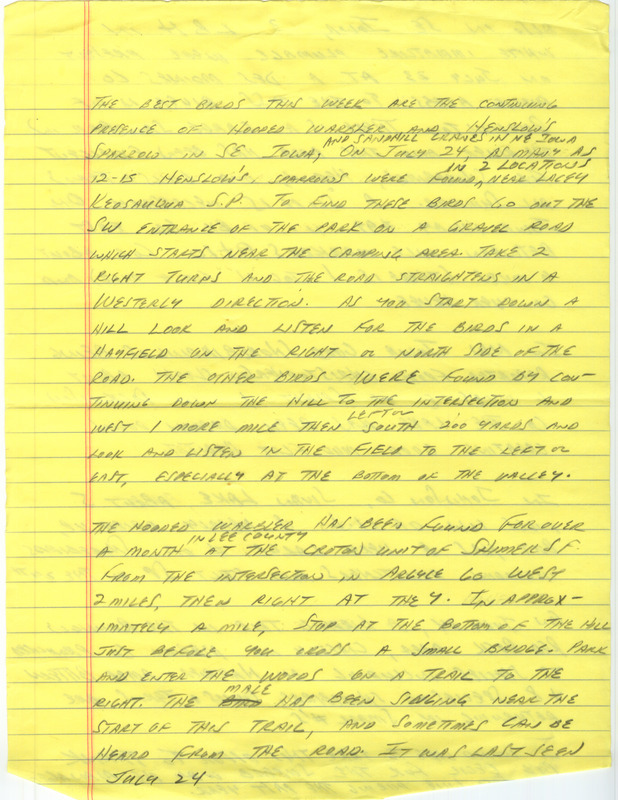 THE BEST BIRDS THIS WEEK ARE THE CONTINUING
PRESENCE OF HOODED WARBLER AND HENSLOW'S
AND SANDHILL CRANES IN NE IOWA
SPARROW IN SE IOWA, ON JULY 24, AS MANY AS
IN 2 LOCATIONS
12-15 HENSLOW'S SPARROWS WERE FOUND, NEAR LACEY
KEOSAUQUA S.P. TO FIND THESE BIRDS GO OUT THE
SW ENTRANCE OF THE PARK ON A GRAVEL ROAD
WHICH STARTS NEAR THE CAMPING AREA. TAKE 2
RIGHT TURNS AND THE ROAD STRAIGHTENS IN A
WESTERLY DIRECTION. AS YOU START DOWN A
HILL LOOK AND LISTEN FOR THE BIRDS IN A
HAYFIELD ON THE RIGHT OR NORTH SIDE OF THE
ROAD. THE OTHER BIRDS WERE FOUND BY CON-
TINUING DOWN THE HILL TO THE INTERSECTION AND
LEFT OR
WEST 1 MORE MILE THEN SOUTH 200 YARDS AND
LOOK AND LISTEN IN THE FIELD TO THE LEFT OR
EAST, ESPECIALLY AT THE BOTTOM OF THE VALLEY.
THE HOODED WARBLER HAS BEEN FOUND FOR OVER
IN LEE COUNTY
A MONTH AT THE CROTON UNIT OF SHIMEK S.F.
FROM THE INTERSECTION IN ARGYLE GO WEST
2 MILES, THEN RIGHT AT THE Y. IN APPROX-
IMATELY A MILE, STOP AT THE BOTTOM OF THE HILL
JUST BEFORE YOU CROSS A SMALL BRIDGE. PARK
AND ENTER THE WOODS ON A TRAIL TO THE
MALE
RIGHT. THE BIRD HAS BEEN SINGING NEAR THE
START OF THIS TRAIL, AND SOMETIMES CAN BE
HEARD FROM THE ROAD. IT WAS LAST SEEN
JULY 24